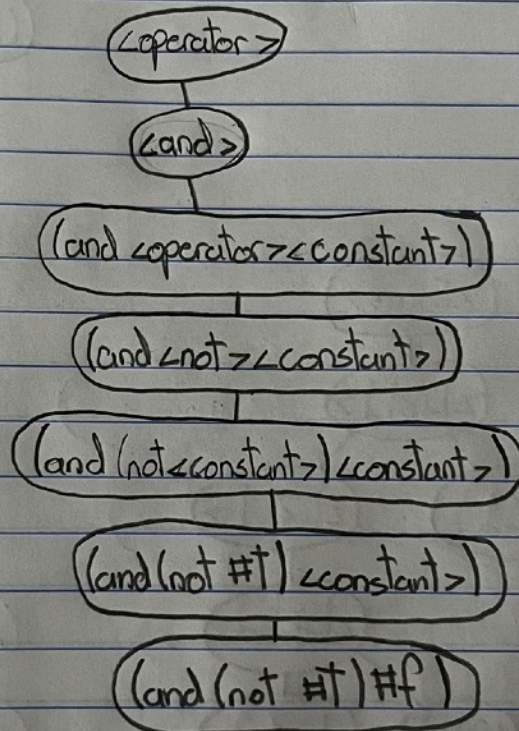 <operator>
<and>
(and <operator><constant>)
(and <not><constant>)
(and (not<constant>) <constant>)
(and (not #t) <constant>)
(and (not #t) #f)